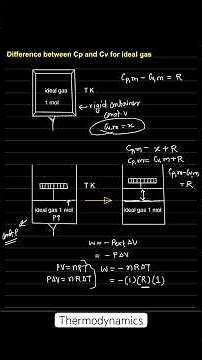 Difference between Cp and Cv for ideal gas
Cp,m - Cv,m = R
ideal gas
1 mol
T K
rigid container
const. V
Cv,m = x
Cp,m - x + R
Cp,m = Cv,m + R
Cp,m - Cv,m
= R
T K
ideal gas 1 mol
P↑
const P
ideal gas 1 mol
W = - Pext ΔV
= - P ΔV
PV = nRT
PΔV = nRΔT
W = - nRΔT
= -(1)(R)(1)
Thermodynamics